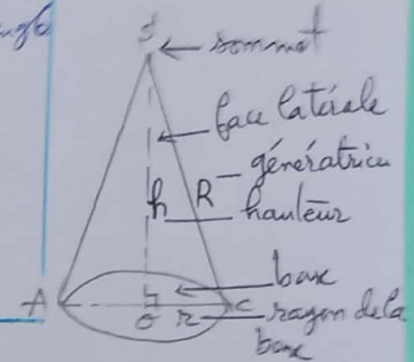 S
sommet
face latérale
R génératrice
h hauteur
base
A O r C rayon de la
base